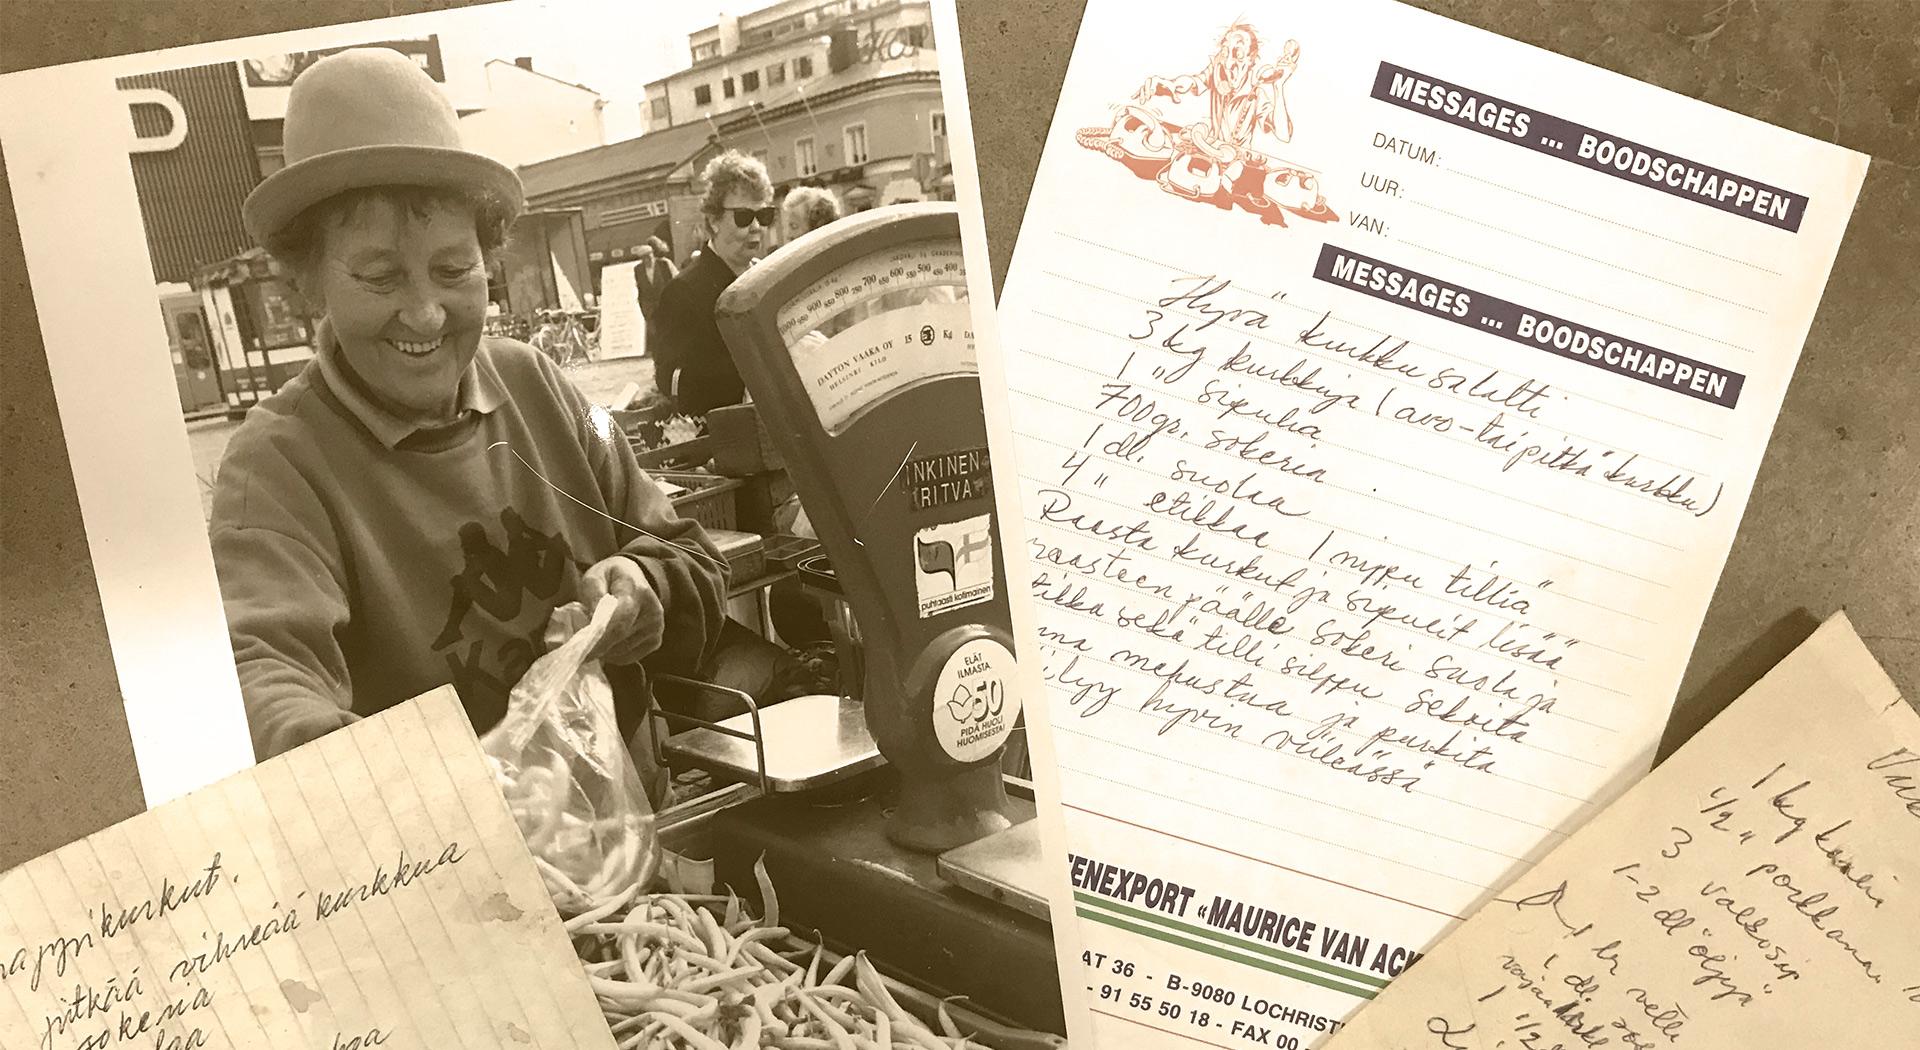 P
1000 950 900 850 800 750 700 650 600 550 500 450 400
DAYTON VAAKA OY 15 Kg
HELSINKI KILO
INKINEN
RITVA
puhtaasti kotimainen
ELÄT
ILMASTA
50
PIDÄ HUOLI
HUOMISESTA!
MESSAGES ... BOODSCHAPPEN
DATUM:
UUR:
VAN:
MESSAGES ... BOODSCHAPPEN
Hyvä kurkku salatti
3 kg kurkkuja (avo-tai pitkä kurkku)
1 " sipulia
700gr. sokeria
1 dl. suolaa
4 " etikkaa 1 nippu tilliä
Raasta kurkut ja sipulit lisää
raasteen päälle sokeri suola ja
tikka sekä tilli silppu sekoita
na mehustua ja purkita
ilyy hyvin viileässä
ENEXPORT «MAURICE VAN ACK
AT 36 - B-9080 LOCHRISTI
- 91 55 50 18 - FAX 00
apyrikurkut.
pitkää vihreää kurkkua
sokeria
laa
kaa
1 kg kaalia
1/2 " porkkanaa
3 valkosip
1-2 dl öljyä
1 ltr vettä
1 dl.
1
1/2